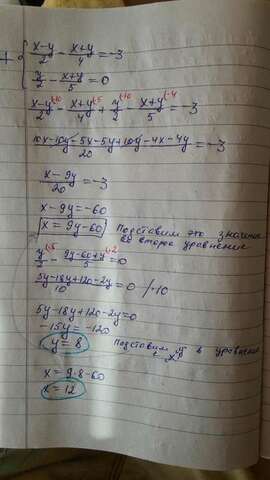 + { (x-y)/2 - (x+y)/4 = -3
y/2 - (x+y)/5 = 0
(x-y)/2 \10 - (x+y)/4 \5 + y/2 \10 - (x+y)/5 \4 = -3
(10x-10y-5x-5y+10y-4x-4y)/20 = -3
(x-9y)/20 = -3
x-9y=-60
x=9y-60 Подставим это значение
во второе уравнение
y/2 \5 - (9y-60+y)/5 \2 = 0
(5y-18y+120-2y)/10 = 0 /·10
5y-18y+120-2y=0
-15y=-120
y=8 Подставим y в уравнение
x
x=9·8-60
x=12